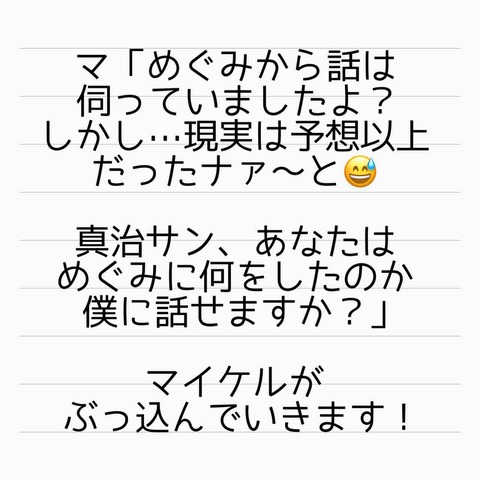 マ「めぐみから話は
伺っていましたよ？
しかし…現実は予想以上
だったナァ〜と😅
真治サン、あなたは
めぐみに何をしたのか
僕に話せますか？」
マイケルが
ぶっ込んでいきます！